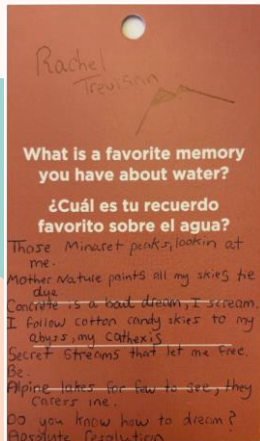 Rachel
Trevisan
What is a favorite memory
you have about water?
¿Cuál es tu recuerdo
favorito sobre el agua?
Those Minaret peaks, lookin at
me.
Mother Nature paints all my skies tie
dye
Concrete is a bad dream, I scream.
I follow cotton candy skies to my
abyss, my cathexis
Secret streams that let me free.
Be.
Alpine lakes far few to see, they
caress me.
Do you know how to dream?
Absolute Resolution